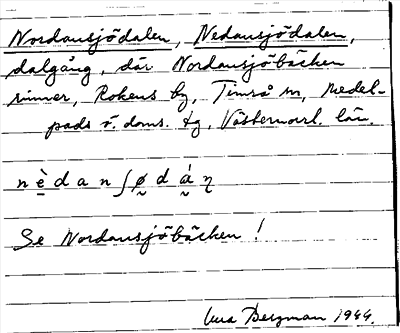 Nordansjödalen, Nedansjödalen,
dalgång, där Nordansjöbäcken
rinner, Rokens by, Timrå sn, Medel-
pads ö. doms. tg, Västernorrl. län.
n è d a n ʃ ø d á ɳ
Se Nordansjöbäcken!
Bergman 1944.